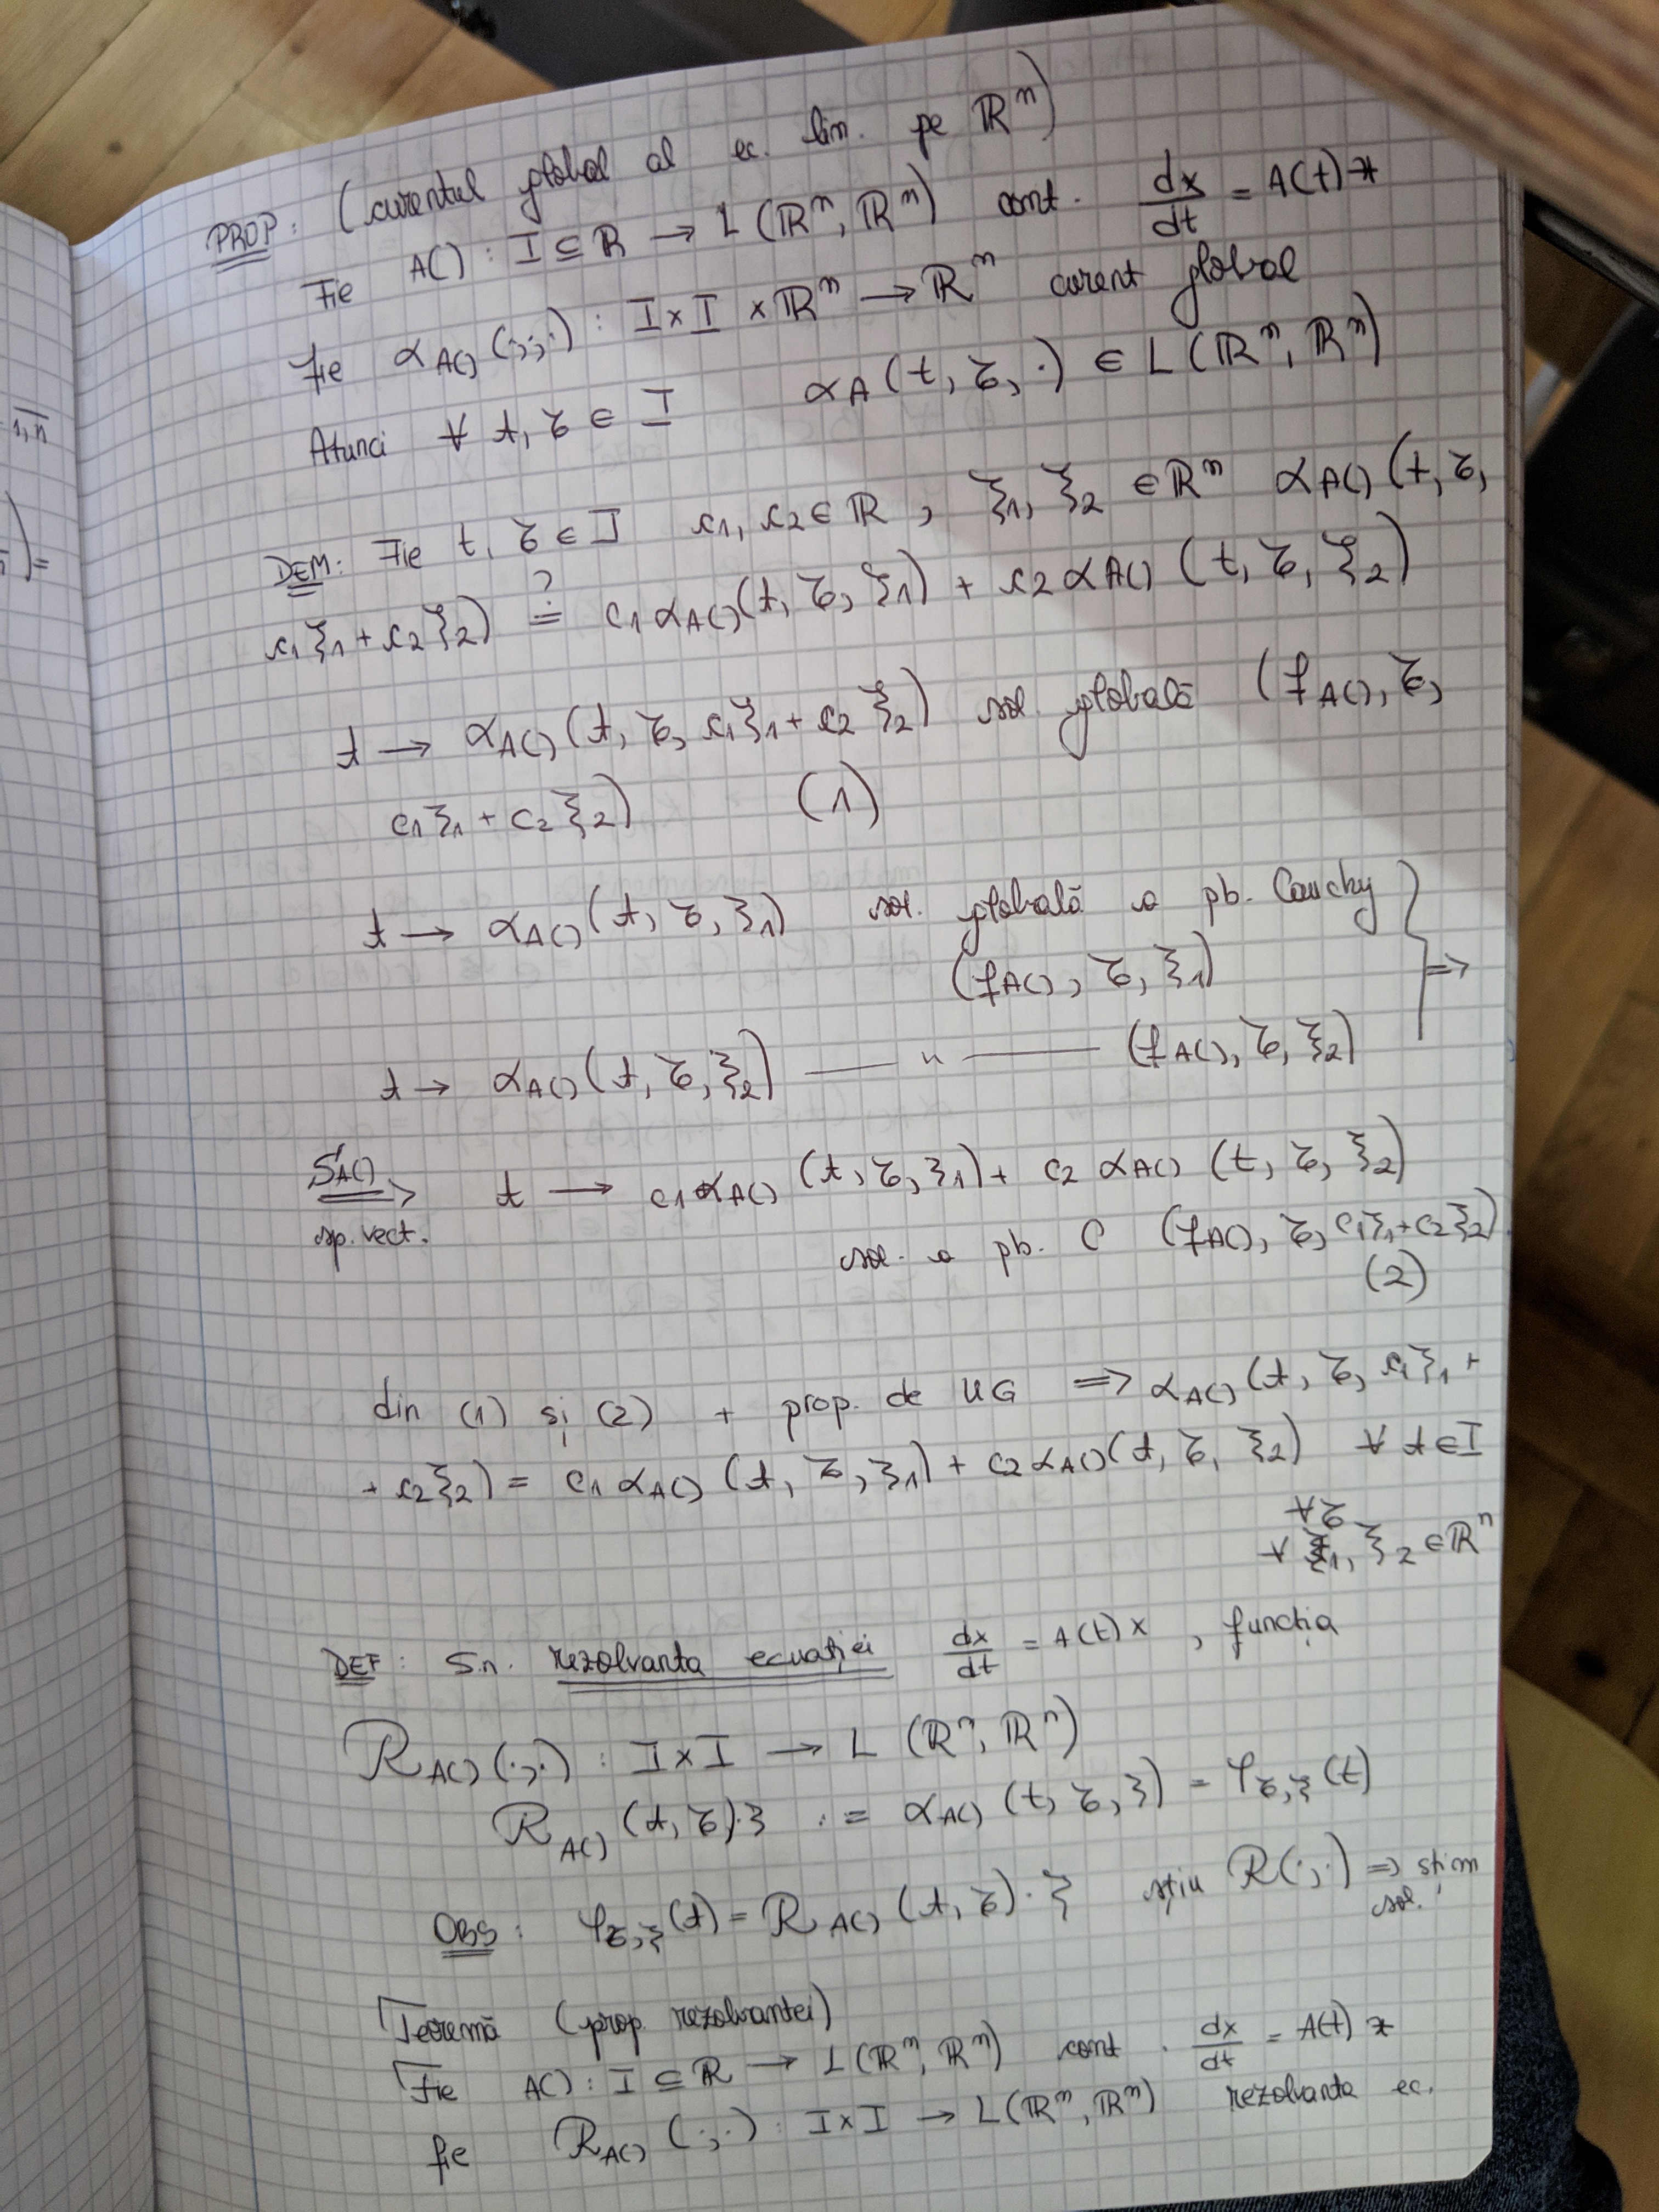 PROP: (curentul global al ec. lin. pe ℝⁿ)
Fie A() : I ⊆ ℝ → L(ℝⁿ, ℝⁿ) cont. dx/dt = A(t)x
Fie α_A()(·;·;·) : I×I×ℝⁿ → ℝⁿ curent global
Atunci ∀ t, τ ∈ I α_A(t, τ, ·) ∈ L(ℝⁿ, ℝⁿ)
DEM: Fie t, τ ∈ I c₁, c₂ ∈ ℝ, ξ₁, ξ₂ ∈ ℝⁿ α_A()(t, τ,
c₁ξ₁ + c₂ξ₂) ≟ c₁α_A()(t, τ, ξ₁) + c₂α_A()(t, τ, ξ₂)
t → α_A()(t, τ, c₁ξ₁ + c₂ξ₂) sol. globală (f_A(), τ,
c₁ξ₁ + c₂ξ₂) (1)
t → α_A()(t, τ, ξ₁) sol. globală a pb. Cauchy
(f_A(), τ, ξ₁) ⇒
t → α_A()(t, τ, ξ₂) —— " —— (f_A(), τ, ξ₂)
S_A() ⇒ t → c₁α_A()(t, τ, ξ₁) + c₂α_A()(t, τ, ξ₂)
sp. vect. sol. a pb. C (f_A(), τ, c₁ξ₁+c₂ξ₂)
(2)
din (1) și (2) + prop. de UG ⇒ α_A()(t, τ, c₁ξ₁ +
+ c₂ξ₂) = c₁α_A()(t, τ, ξ₁) + c₂α_A()(t, τ, ξ₂) ∀ t ∈ I
∀ τ
∀ ξ₁, ξ₂ ∈ ℝⁿ
DEF: S.n. rezolvanta ecuației dx/dt = A(t)x, funcția
R_A()(·;·) : I×I → L(ℝⁿ, ℝⁿ)
R_A()(t, τ)·ξ := α_A()(t, τ, ξ) = φ_τ,ξ(t)
OBS: φ_τ,ξ(t) = R_A()(t, τ)·ξ știu R(·;·) ⇒ știm
sol.
Teoremă (prop. rezolvantei)
Fie A() : I ⊆ ℝ → L(ℝⁿ, ℝⁿ) cont. dx/dt = A(t)x
fie R_A()(·;·) : I×I → L(ℝⁿ, ℝⁿ) rezolvanta ec.
1,n
)=